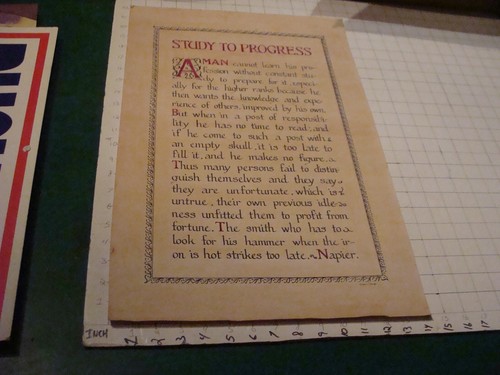 STUDY TO PROGRESS
A MAN cannot learn his pro-
fession without constant stu-
dy to prepare for it especi-
ally for the higher ranks because he
then wants the knowledge and expe-
rience of others, improved by his own.
But when in a post of responsibi-
lity he has no time to read; and
if he come to such a post with
an empty skull, it is too late to
fill it, and he makes no figure.
Thus many persons fail to distin-
guish themselves and they say
they are unfortunate, which is
untrue, their own previous idle-
ness unfitted them to profit from
fortune. The smith who has to
look for his hammer when the ir-
on is hot strikes too late. Napier.
INCH 1 2 3 4 5 6 7 8 9 10 11 12 13 14 15 16 17